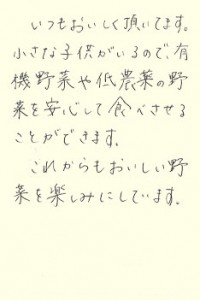 いつもおいしく頂いてます。
小さな子供がいるので、有
機野菜や低農薬の野
菜を安心して食べさせる
ことができます。
これからもおいしい野
菜を楽しみにしています。